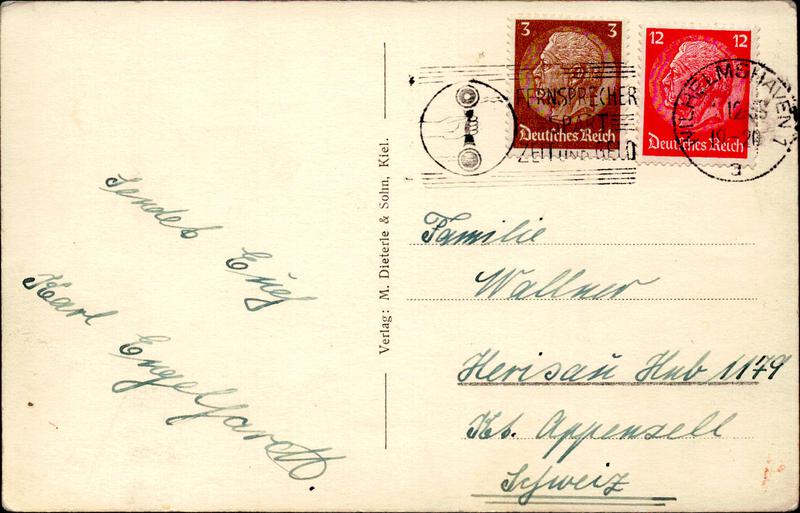 sendet Euch
Karl Engelhardt
Verlag: M. Dieterle & Sohn, Kiel.
3 3
Deutsches Reich
12 12
Deutsches Reich
FERNSPRECHER
SPART
ZEIT UND GELD
WILHELMSHAVEN 1
19-20
a
Familie
Wallner
Herisau Hub 1179
Kt. Appenzell
Schweiz